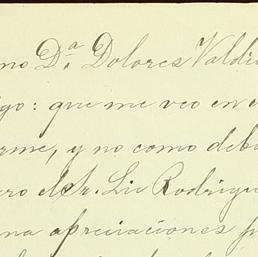 mo D.ª Dolores Valdi
igo: que me veo en e
rme, y no como deb
ero del Sr. Liv Rodrigu
na apreciaciones p